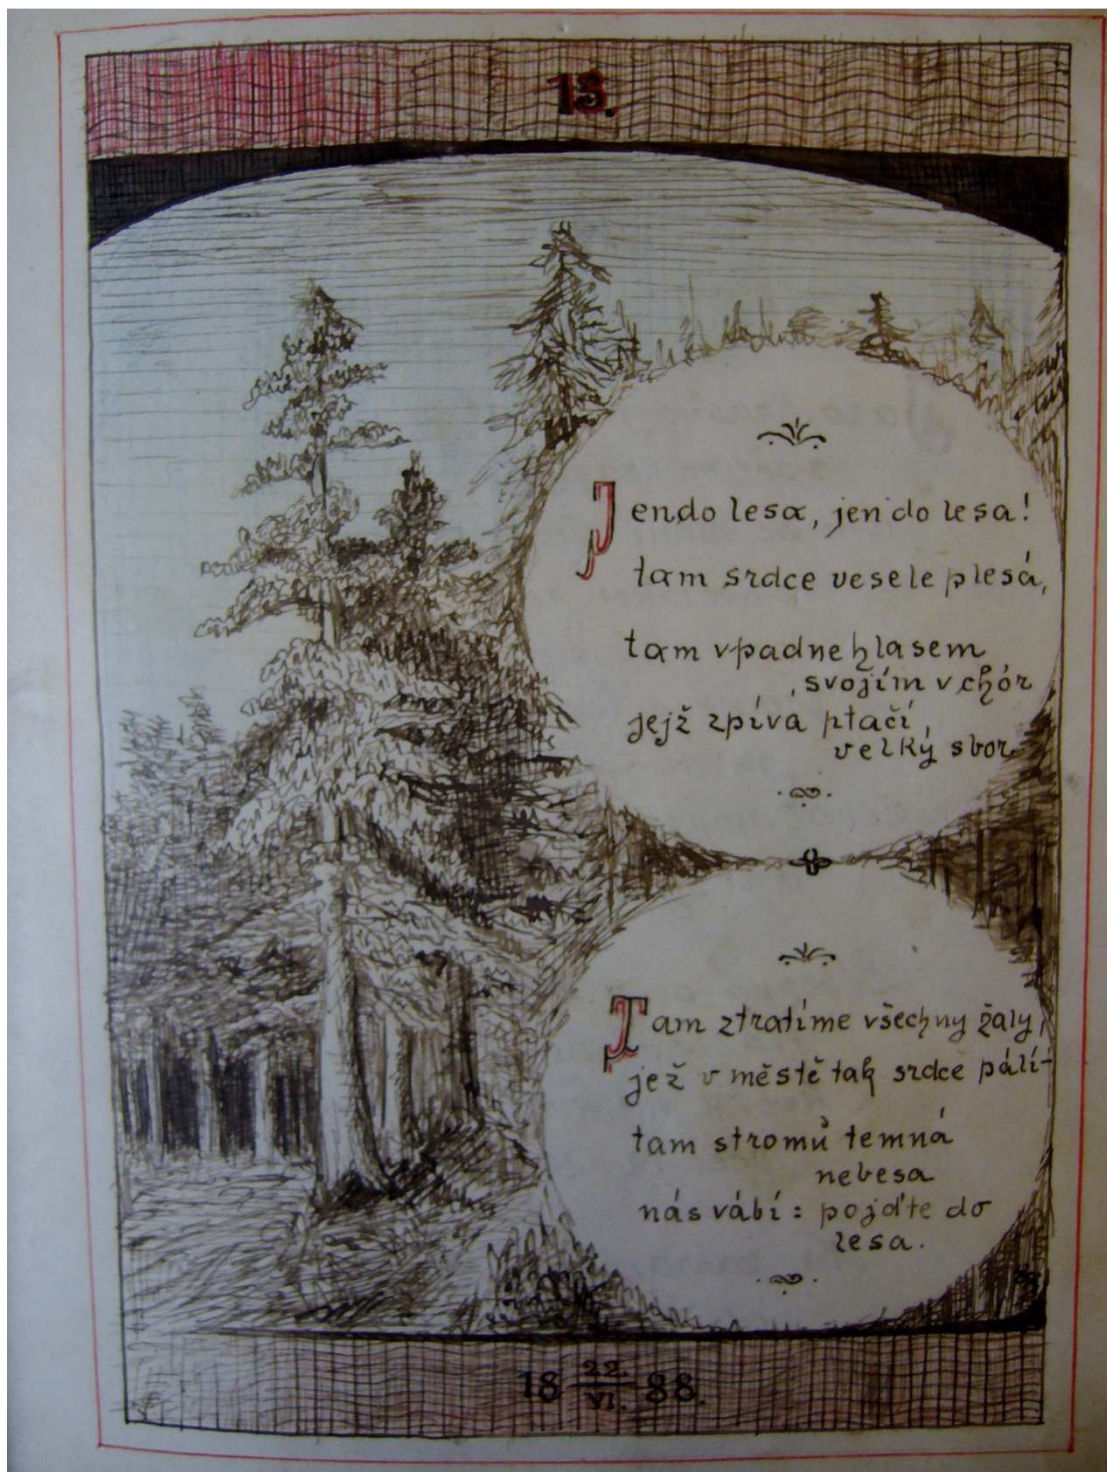 13.
Jen do lesa, jen do lesa!
tam srdce vesele plesá,
tam vpadne hlasem
svojím v chór
jejž zpíva ptačí
velký sbor.
Tam ztratíme všechny žaly,
jež v městě tak srdce pálí-
tam stromů temná
nebesa
nás vábí: pojďte do
lesa.
18 22. VI. 88.